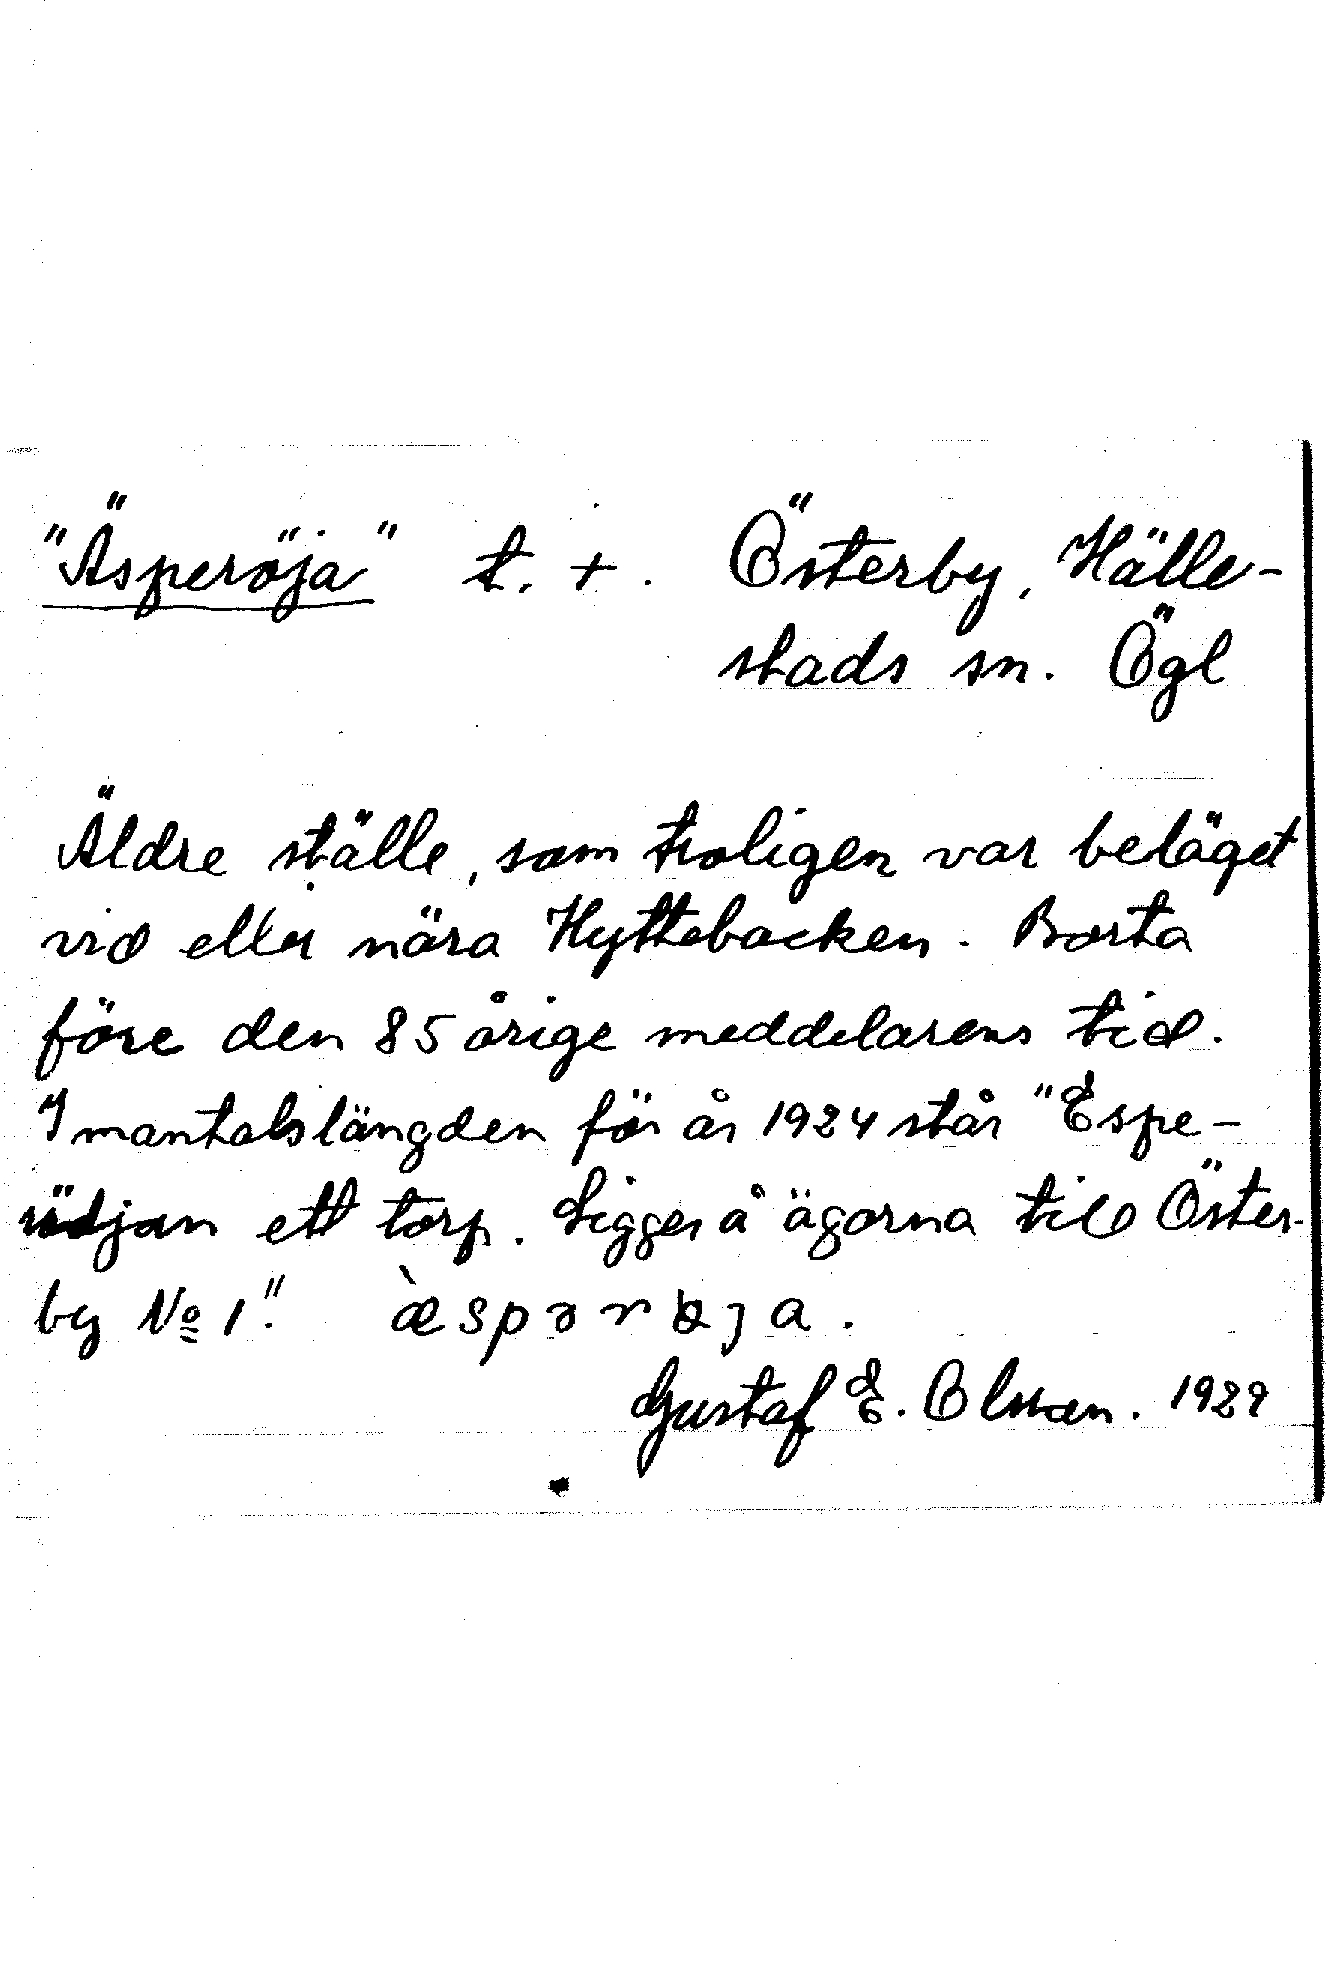 "Äsperöja" t. +. Österby, Hälle-
stads sn. Ögl
Äldre ställe, som troligen var beläget
vid eller nära Hyttebacken. Borta
före den 85 årige meddelarens tid.
I mantalslängden för år 1924 står "Espe-
rödjan ett torp. Ligger å ägorna till Öster-
by No 1".
Gustaf E. Olsson. 1929